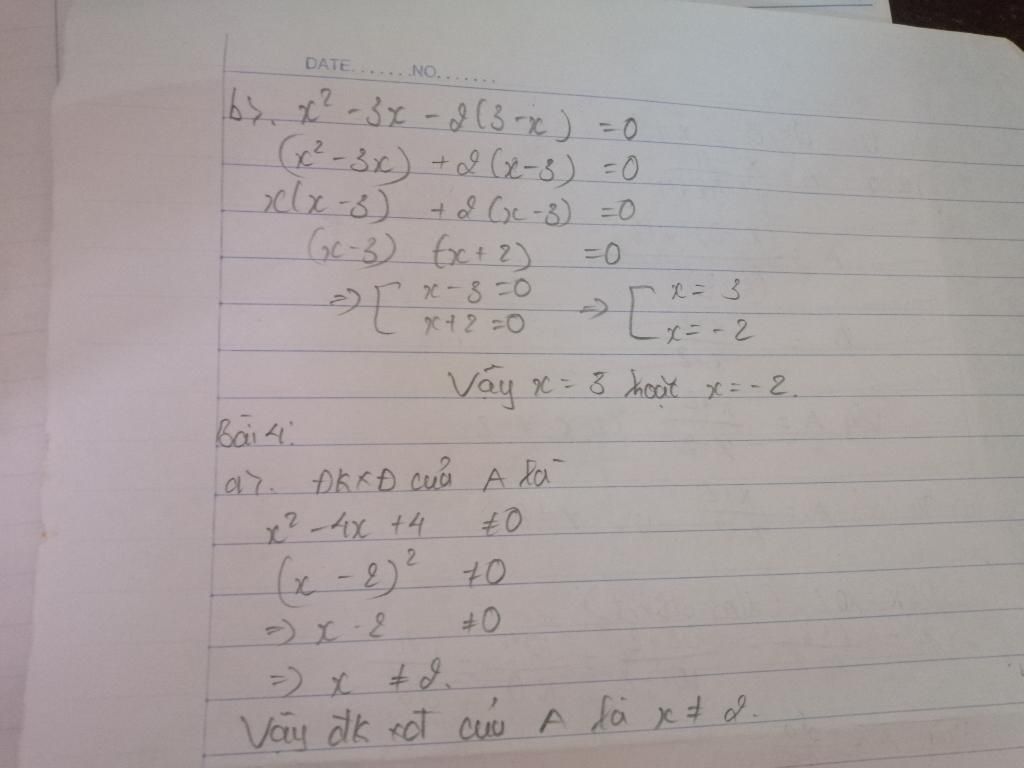 DATE.......NO.......
b>. x² - 3x - 2(3-x) = 0
(x² - 3x) + 2(x-3) = 0
x(x-3) + 2(x-3) = 0
(x-3) (x+2) = 0
=> [ x - 3 = 0 => [ x = 3
x + 2 = 0 x = -2
Vậy x = 3 hoặt x = -2.
Bài 4:
a>. ĐKXĐ của A là
x² - 4x + 4 ≠ 0
(x - 2)² ≠ 0
=> x - 2 ≠ 0
=> x ≠ 2.
Vậy đk xđ của A là x ≠ 2.